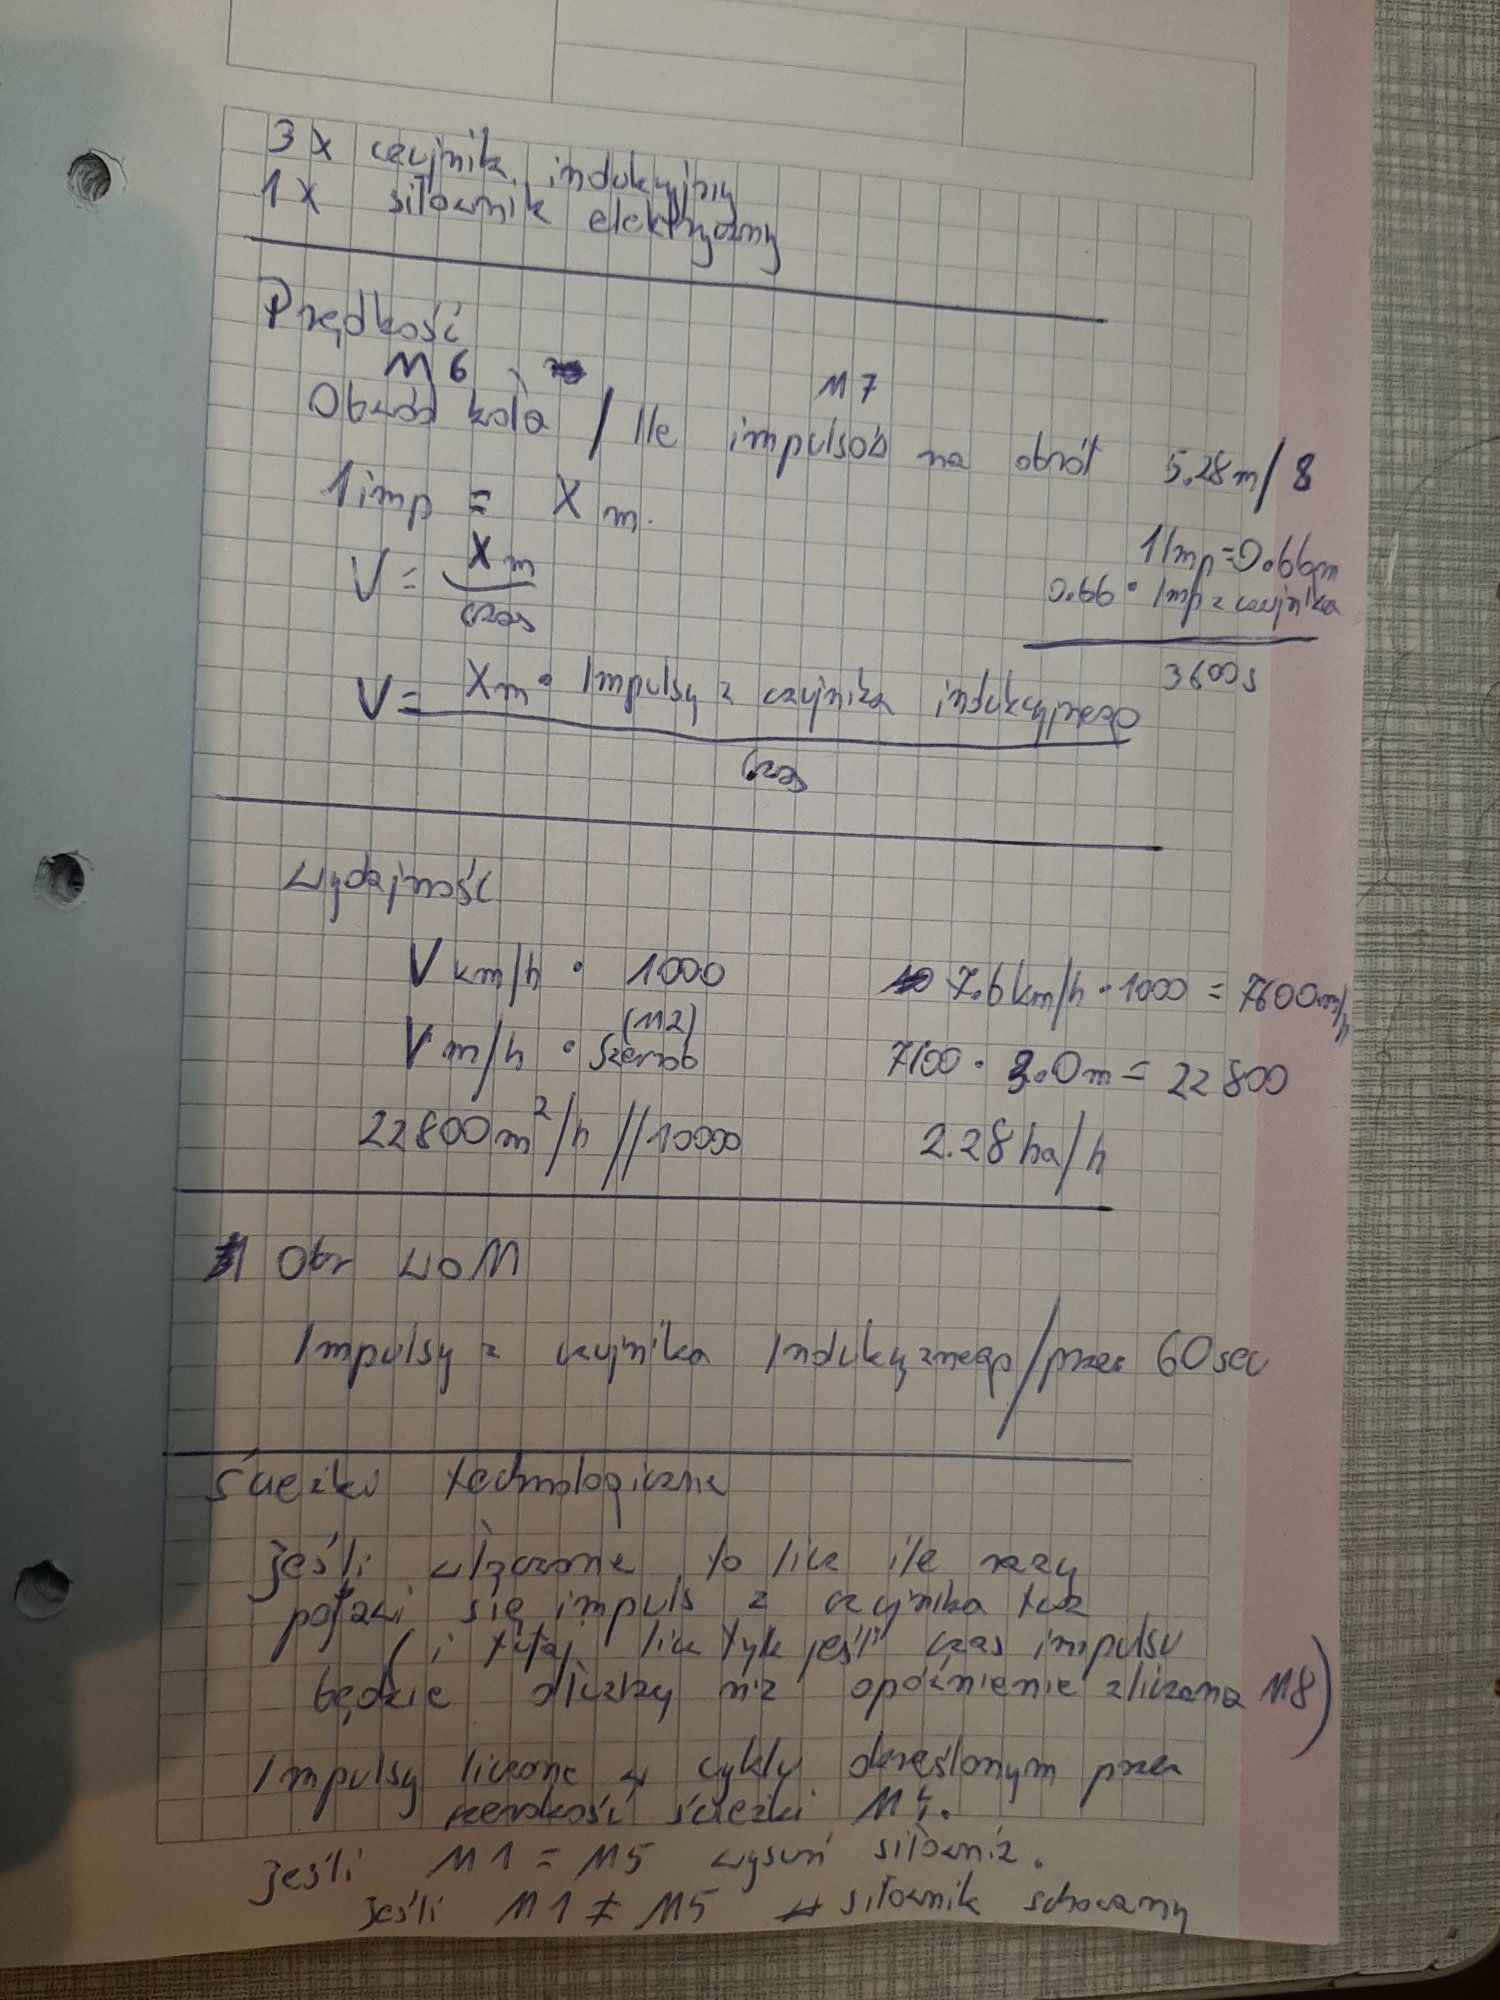 3x czujnik indukcyjny
1x siłownik elektryczny
Prędkość
M6 M7
Obwód koła / Ile impulsów na obrót 5.28m/8
1imp = X m.
1Imp=0.66m
V= Xm
czas
0.66 • Imp z czujnika
3600s
V= Xm • Impulsy z czujnika indukcyjnego
czas
wydajność
V km/h • 1000 7.6km/h • 1000 = 7600m/h
(M2)
V m/h • szerrob 7600 • 3.0m = 22800
22800m²/h //10000 2.28ha/h
Obr WOM
Impulsy z czujnika Indukcyznego/przez 60sec
Ścieżki technologiczne
Jeśli włączone to licz ile razy
pojawi się impuls z czujnika tuz
(i tutaj licz tylk jeśli czas impulsu
będzie dłuższy niż opóźnienie zliczana M8)
Impulsy liczone w cyklu określonym przez
szerokość ścieżki M4.
Jeśli M1 = M5 wysuń siłownik.
Jeśli M1 ≠ M5 siłownik schowany